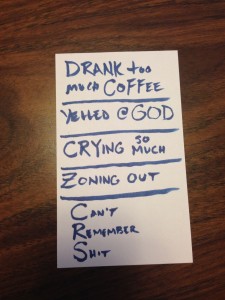 DRANK too
much COFFEE
YELLED @ GOD
CRYING SO
MUCH
ZONING OUT
CAN'T
REMEMBER
SHIT